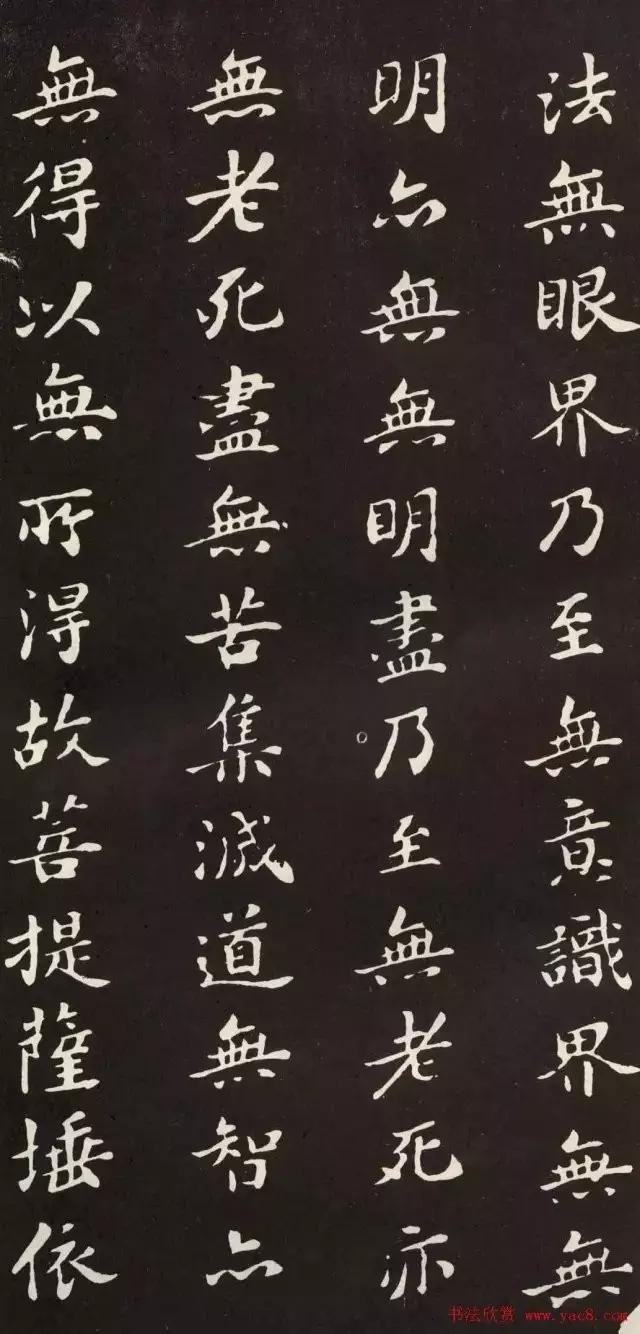 法無眼界乃至無意識界無無
明亦無無明盡乃至無老死亦
無老死盡無苦集滅道無智亦
無得以無所得故菩提薩埵依
书法欣赏 www.yac8.com